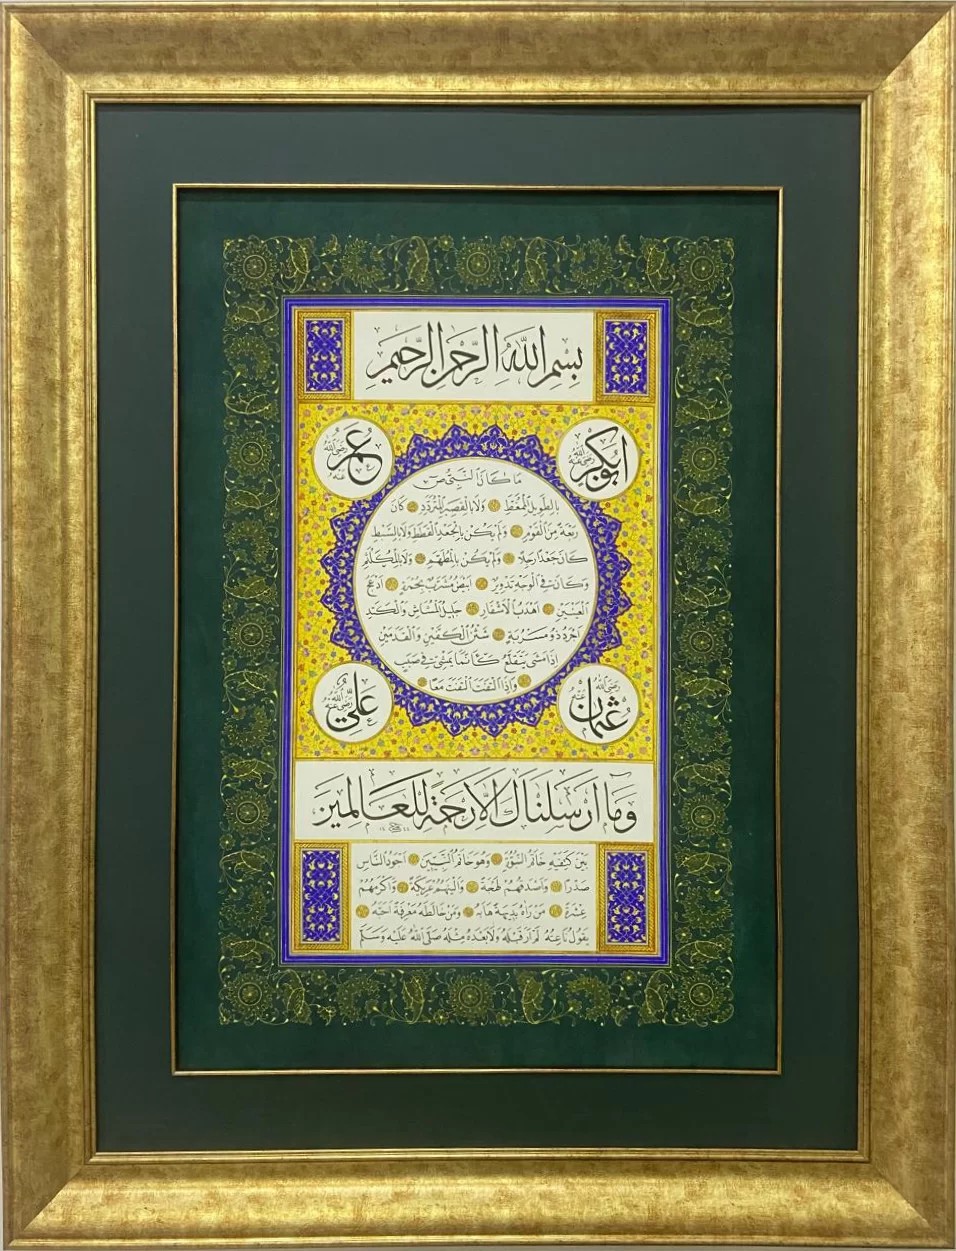 بِسْمِ اللّٰهِ الرَّحْمٰنِ الرَّحِيمِ
ابُوبَكْر رضي الله عنه
عُمَر رضي الله عنه
مَا كَانَ النَّبِيّ ص
بِالطَّوِيلِ الْمُمَغَّطِ وَلَا بِالْقَصِيرِ الْمُتَرَدِّدِ كَانَ
رَبْعَةً مِنَ الْقَوْمِ وَلَمْ يَكُنْ بِالْجَعْدِ الْقَطَطِ وَلَا بِالسَّبْطِ
كَانَ جَعْدًا رَجِلًا وَلَمْ يَكُنْ بِالْمُطَهَّمِ وَلَا بِالْمُكَلْثَمِ
وَكَانَ فِي الْوَجْهِ تَدْوِيرٌ اَبْيَضُ مُشْرَبٌ بِحُمْرَةٍ اَدْعَجُ
الْعَيْنَيْنِ اَهْدَبُ الْاَشْفَارِ جَلِيلُ الْمُشَاشِ وَالْكَتَدِ
اَجْرَدُ ذُو مَسْرُبَةٍ شَثْنُ الْكَفَّيْنِ وَالْقَدَمَيْنِ
اِذَا مَشَى يَتَقَلَّعُ كَاَنَّمَا يَمْشِي فِي صَبَبٍ
وَاِذَا الْتَفَتَ الْتَفَتَ مَعًا
عُثْمَان رضي الله عنه
عَلِيّ رضي الله عنه
وَمَا اَرْسَلْنَاكَ اِلَّا رَحْمَةً لِلْعَالَمِينَ
بَيْنَ كَتِفَيْهِ خَاتَمُ النُّبُوَّةِ وَهُوَ خَاتَمُ النَّبِيِّينَ اَجْوَدُ النَّاسِ
صَدْرًا وَاَصْدَقُهُمْ لَهْجَةً وَاَلْيَنُهُمْ عَرِيكَةً وَاَكْرَمُهُمْ
عِشْرَةً مَنْ رَاٰهُ بَدِيهَةً هَابَهُ وَمَنْ خَالَطَهُ مَعْرِفَةً اَحَبَّهُ
يَقُولُ نَاعِتُهُ لَمْ اَرَ قَبْلَهُ وَلَا بَعْدَهُ مِثْلَهُ صَلَّى اللّٰهُ عَلَيْهِ وَسَلَّمَ